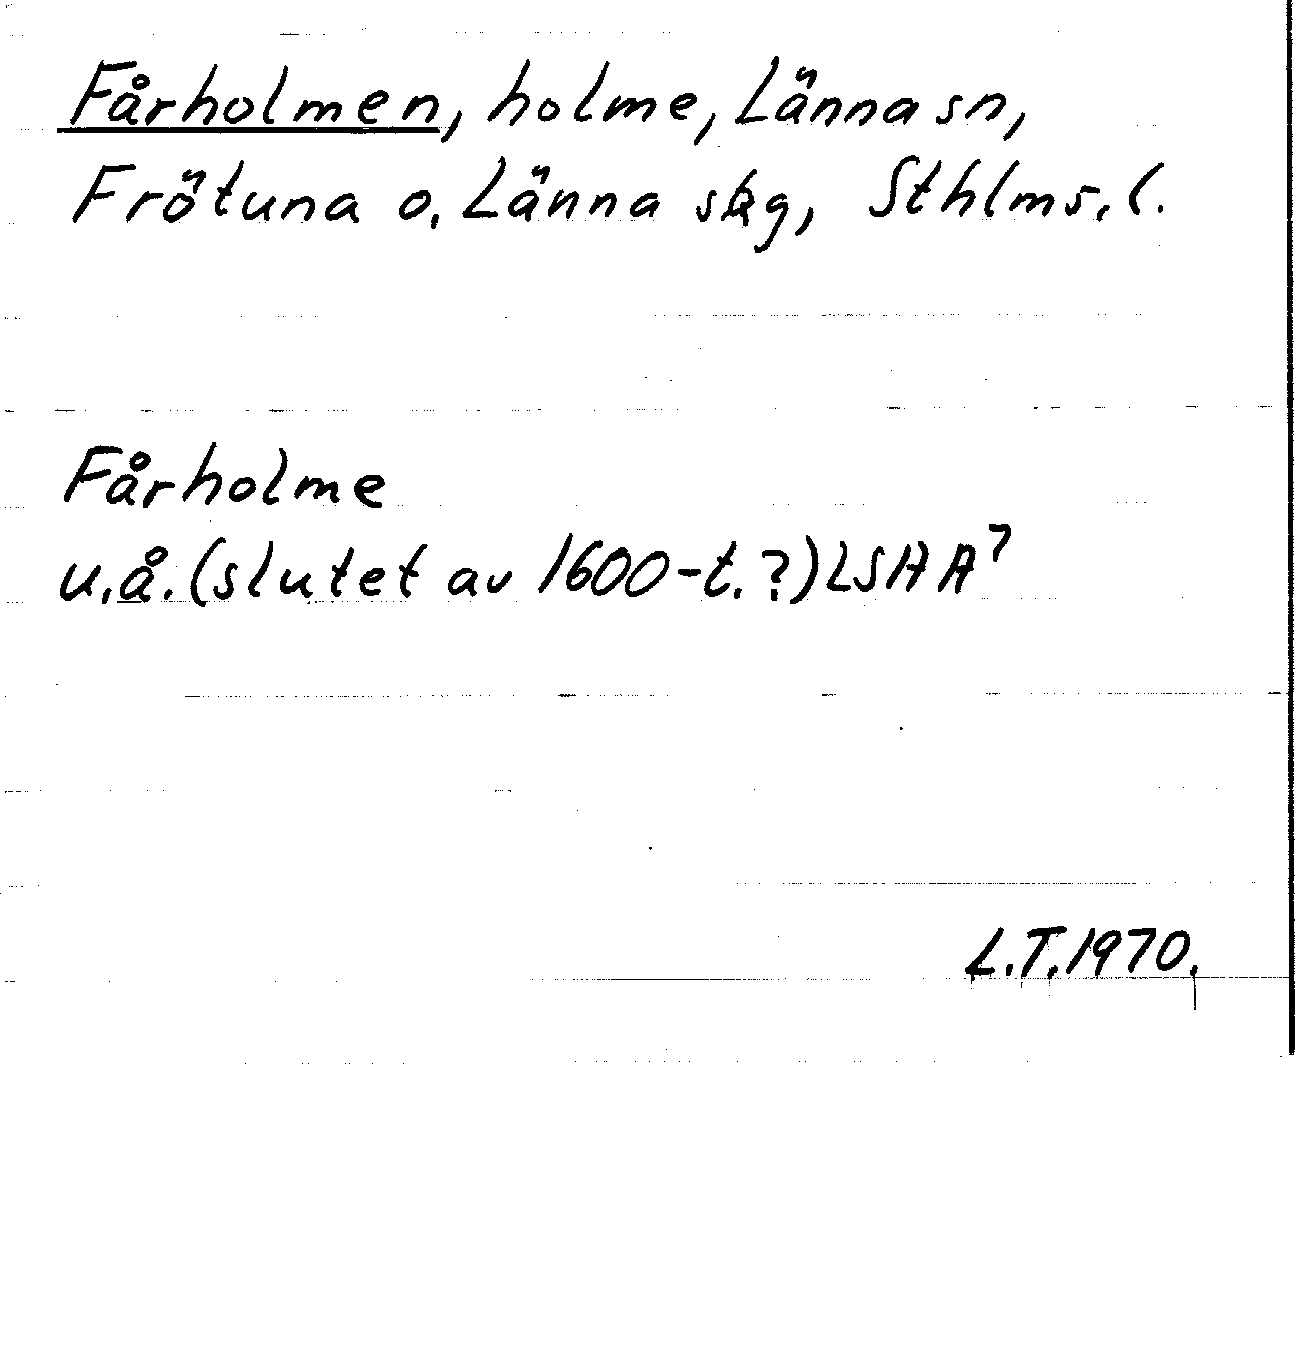 Fårholmen, holme, Länna sn,
Frötuna o. Länna skg, Sthlms. l.
Fårholme
u.å. (slutet av 1600-t.?) LSA A⁷
L.T. 1970.